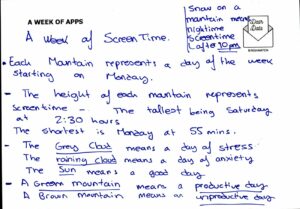 A WEEK OF APPS
A Week of Screentime.
Snow on a
mountain means
nightime
Screentime
(after 10pm
Dear
Data
• Each Mountain represents a day of the week
starting on Monday.
- The height of each mountain represents
Screentime - The tallest being Saturday
at 2:30 hours
The shortest is Monday at 55 mins.
- The Grey Cloud means a day of stress
The raining cloud means a day of anxiety
The Sun means a good day
- A Green mountain means a productive day
A Brown mountain means an unproductive day